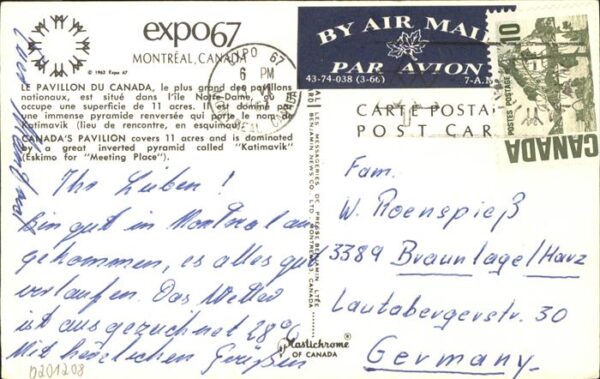 expo67
MONTRÉAL, CANADA
© 1963 Expo 67
LE PAVILLON DU CANADA, le plus grand des pavillons
nationaux, est situé dans l'île Notre-Dame, et
occupe une superficie de 11 acres. Il est dominé par
une immense pyramide renversée qui porte le nom de
Katimavik (lieu de rencontre, en esquimau).
CANADA'S PAVILION covers 11 acres and is dominated
by a great inverted pyramid called "Katimavik"
(Eskimo for "Meeting Place").
Ihr Lieben!
Bin gut in Montreal an
gekommen, es alles gut
verlaufen. Das Wetter
ist ausgezeichnet 28°
Mit herzlichen Grüßen
D201208
EXPO 67
6 PM
CANADA
BY AIR MAIL
PAR AVION
43-74-038 (3-66)
7-A.M.
10
POSTES POSTAGE
CANADA
CARTE POSTALE
POST CARD
LES MESSAGERIES DE PRESSE BENJAMIN LTÉE
BENJAMIN NEWS CO. LTD., MONTREAL, CANADA
Plastichrome
OF CANADA
Fam.
W. Roenspieß
3389 Braunlage/Harz
Lautabergerstr. 30
Germany.